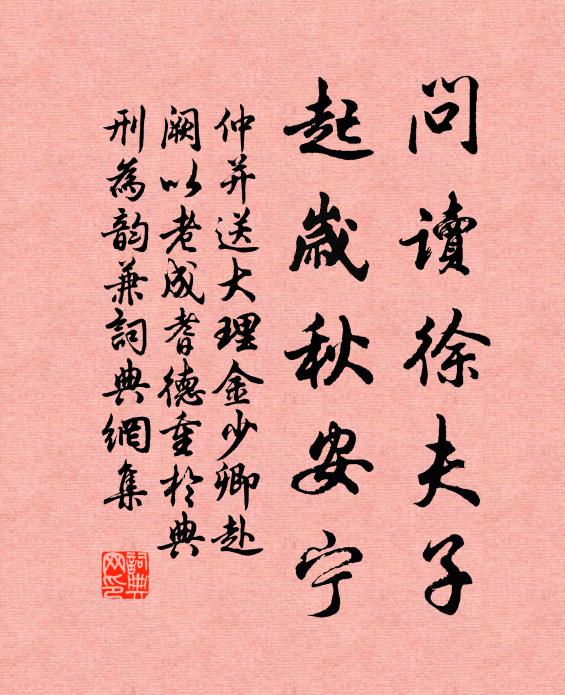 问讀徐夫子
起歲秋安宁
仲并送大理金少卿赴
阙以老成耆德重於典
刑為韵兼詞典網集
詞典网印